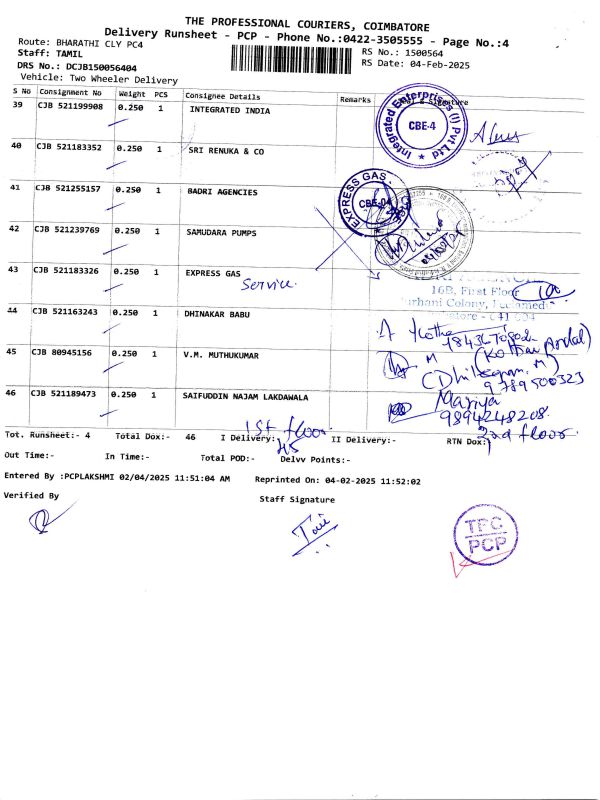 THE PROFESSIONAL COURIERS, COIMBATORE
Delivery Runsheet - PCP - Phone No.:0422-3505555 - Page No.:4
Route: BHARATHI CLY PC4
RS No.: 1500564
Staff: TAMIL
RS Date: 04-Feb-2025
DRS No.: DCJB150056404
Vehicle: Two Wheeler Delivery
S No Consignment No Weight PCS Consignee Details Remarks & Signature
39 CJB 521199908 0.250 1 INTEGRATED INDIA
Integrated Enterprises (I) Pvt Ltd
CBE-4
40 CJB 521183352 0.250 1 SRI RENUKA & CO
41 CJB 521255157 0.250 1 BADRI AGENCIES
EXPRESS GAS
CBE-04
42 CJB 521239769 0.250 1 SAMUDARA PUMPS
43 CJB 521183326 0.250 1 EXPRESS GAS
Service.
16B, First Floor
44 CJB 521163243 0.250 1 DHINAKAR BABU
45 CJB 80945156 0.250 1 V.M. MUTHUKUMAR
M
9789500323
46 CJB 521189473 0.250 1 SAIFUDDIN NAJAM LAKDAWALA
Mariya
9894248208
1st floor
Tot. Runsheet:- 4 Total Dox:- 46 I Delivery:- 45 II Delivery:- RTN Dox:
floor
Out Time:- In Time:- Total POD:- Delvv Points:-
Entered By :PCPLAKSHMI 02/04/2025 11:51:04 AM Reprinted On: 04-02-2025 11:52:02
Verified By
Staff Signature
TPC
PCP